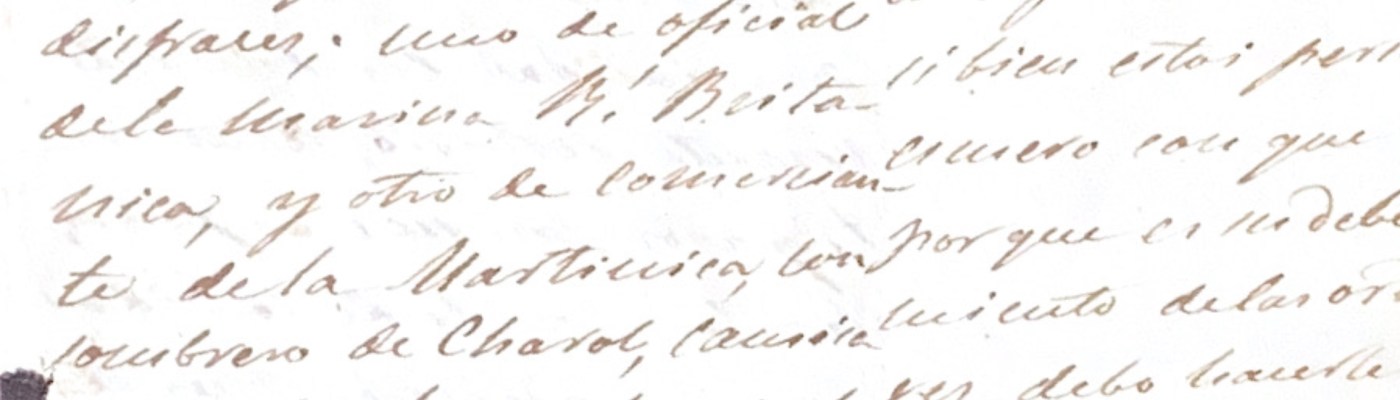 disfraces; uno de oficial
dela Marina R.¹ Brita-
nica, y otro de comercian-
te de la Martinica, con
sombrero de Charol, camisa
si bien estos per
esmero con que
por que es indebe
miento delas or
ves debo hacerle